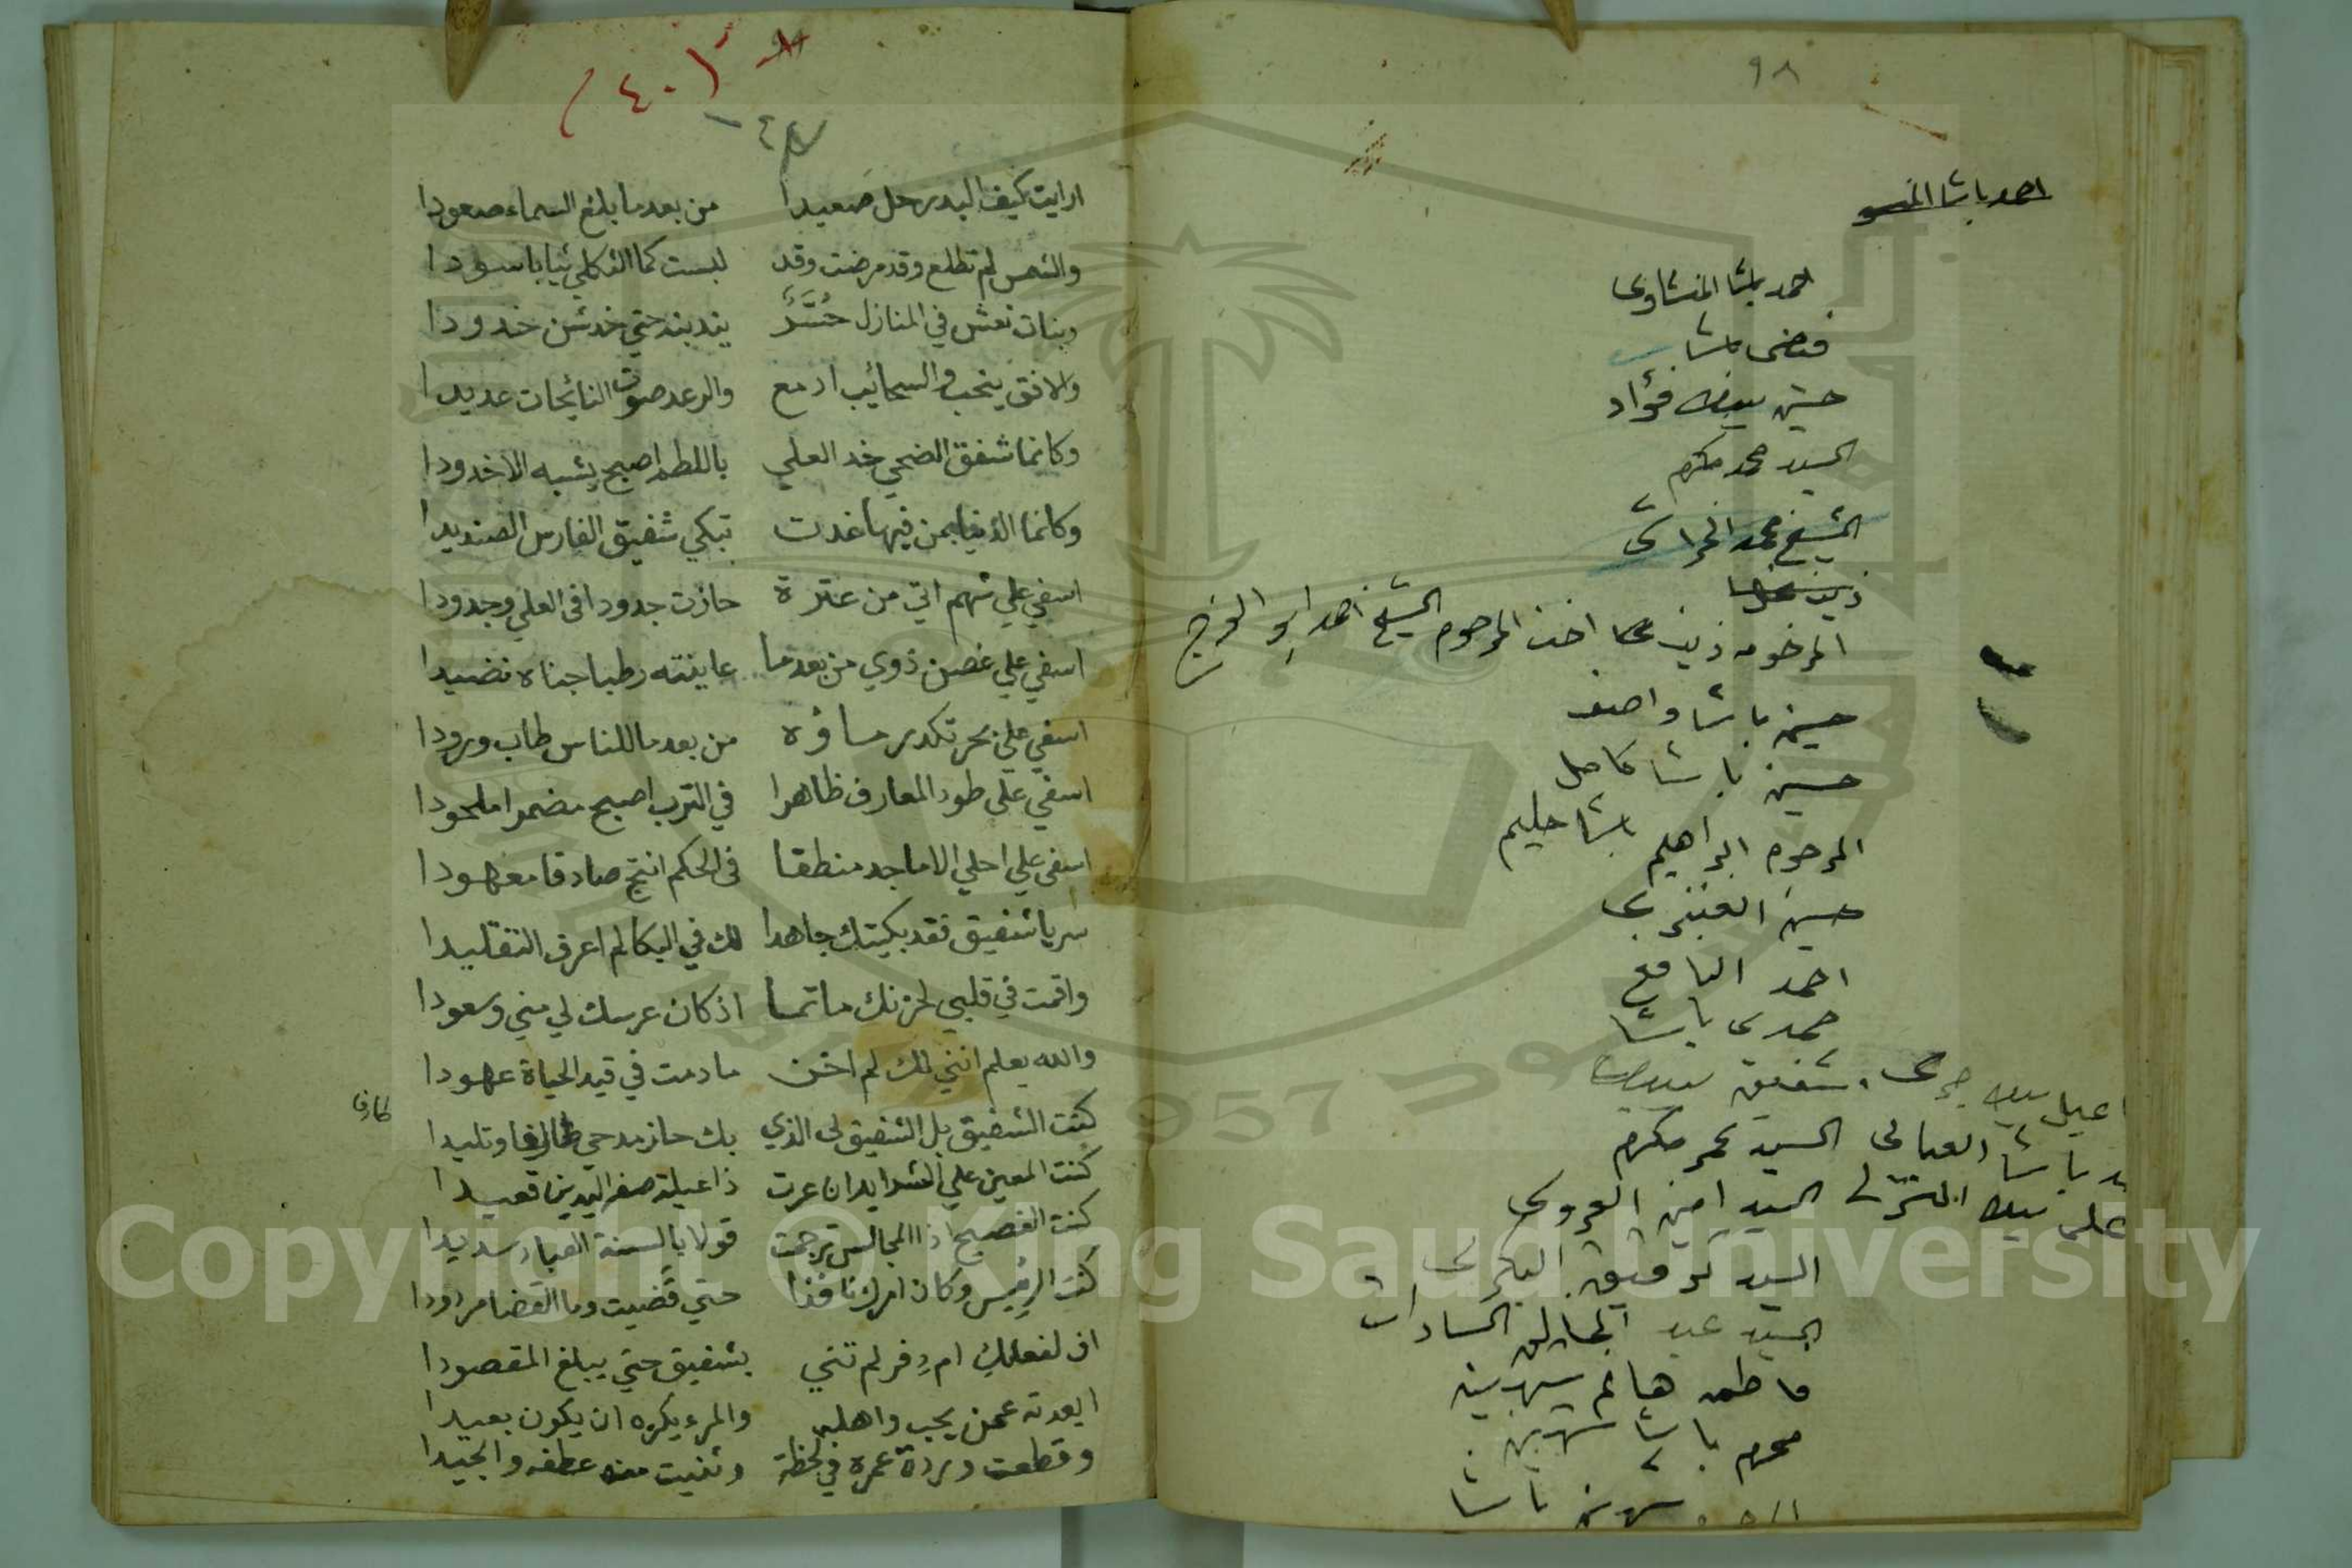 ٩٨
احمد باشا المنسو
احمد باشا المنشاوى
فيضى باشا
حسين بيك فؤاد
السيد محمد مكرم
الشيخ محمد الخراشى
زينب
المرحومه زينب اخت المرحوم الشيخ احمد ابو الفرج
حسين باشا واصف
حسين باشا كامل
المرحوم ابراهيم باشا حليم
حسين
احمد
حمدى باشا
شفيق بيك
باشا السيد عمر مكرم
على بيك السيد امين العروسى
السيد توفيق البكرى
السيد عبد الخالق السادات
فاطمه هانم شهرين
محرم باشا شهرين
باشا
(٤٠١
ارايت كيف البدر حل صعيدا من بعد ما بلغ السماء صعودا
والشمس لم تطلع وقد مرضت وقد لبست كما الثكلي ثيابا سودا
وبنات نعش في المنازل حُسَّرٌ يندبنه حتي خدشن خدودا
والافق ينحب والسحائيب ادمع والرعد صوت النائحات عديدا
وكانما شفق الضحي خد العلي باللطم اصبح يشبه الاخدودا
وكانما الدنيا بمن فيها غدت تبكي شفيق الفارس الصنديدا
اسفي علي شهم اتي من عترة حازت جدودا في العلي وجدودا
اسفي علي غصن ذوي من بعد ما عاينته رطبا جناه نضيدا
اسفي علي بحر تكدر ماؤه من بعد ما للناس طاب ورودا
اسفي علي طود المعارف ظاهرا في الترب اصبح مضمرا ملحودا
اسفي علي احلي الاماجد منطقا في الحكم انتج صادقا معهودا
سر يا شفيق فقد بكيتك جاهدا لك في البكا لم اعرف التقليدا
واقمت في قلبي لحزنك ماتما اذ كان عرسك لي مني وسعودا
والله يعلم انني لك لم اخن ما دمت في قيد الحياة عهودا
كنت الشفيق بل الشفيق لي الذي بك حاز مدحي طارفا وتليدا
طارفا
كنت المعين علي الشدايد ان عرت ذا عيلة صفر اليدين قعيدا
كنت الفصيح اذا المجالس ترجمت قولا بالسنة العباد سديدا
كنت الرئيس وكان امرك نافذا حتي قضيت وما القضا مردودا
اف لفعلكِ ام دفر لم تنثني بشفيق حتي يبلغ المقصودا
ابعدته عمن يحب واهله والمرء يكره ان يكون بعيدا
وقطعت وردة عمره في لحظة وثنيت منه عطفه والجيدا
Copyright © King Saud University
1957